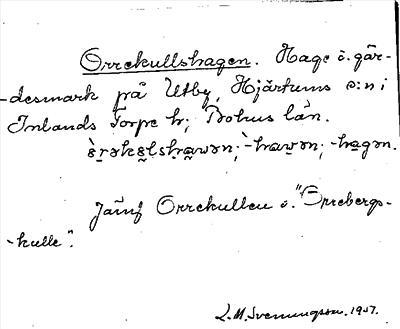 Orrekullshagen. Hage o. går-
-desmark på Utby, Hjärtums s:n i
Inlands Torpe h; Bohus län.
-hawən; -hagən.
Jämf Orrekullen o. "Orrebergs-
-kulle".
L. M. Svenungsson. 1907.